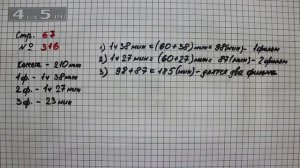 4 5
Стр. 67
№ 316
Кассета - 210 мин
1ф - 1ч 38 мин
2ф - 1ч 27 мин
3ф - 23 мин
1) 1ч 38 мин = (60+38) мин = 98 (мин) - 1 фильм
2) 1ч 27 мин = (60+27) мин = 87 (мин) - 2 фильм
3) 98 + 87 = 185 (мин) - длятся два фильма